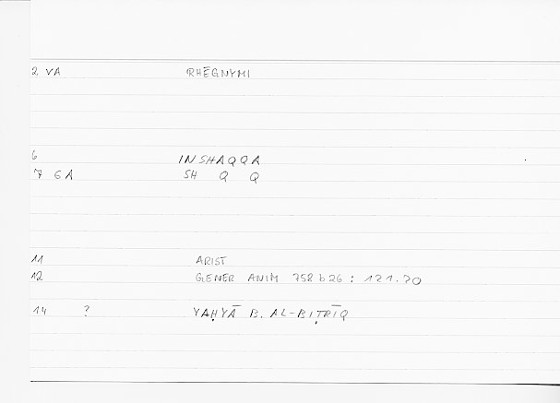 2 VA RHĒGNYMI
6 INSHAQQA
7 6A SH Q Q
11 ARIST
12 GENER ANIM 752b26 : 121.70
14 ? YAḤYĀ B. AL-BIṬRĪQ